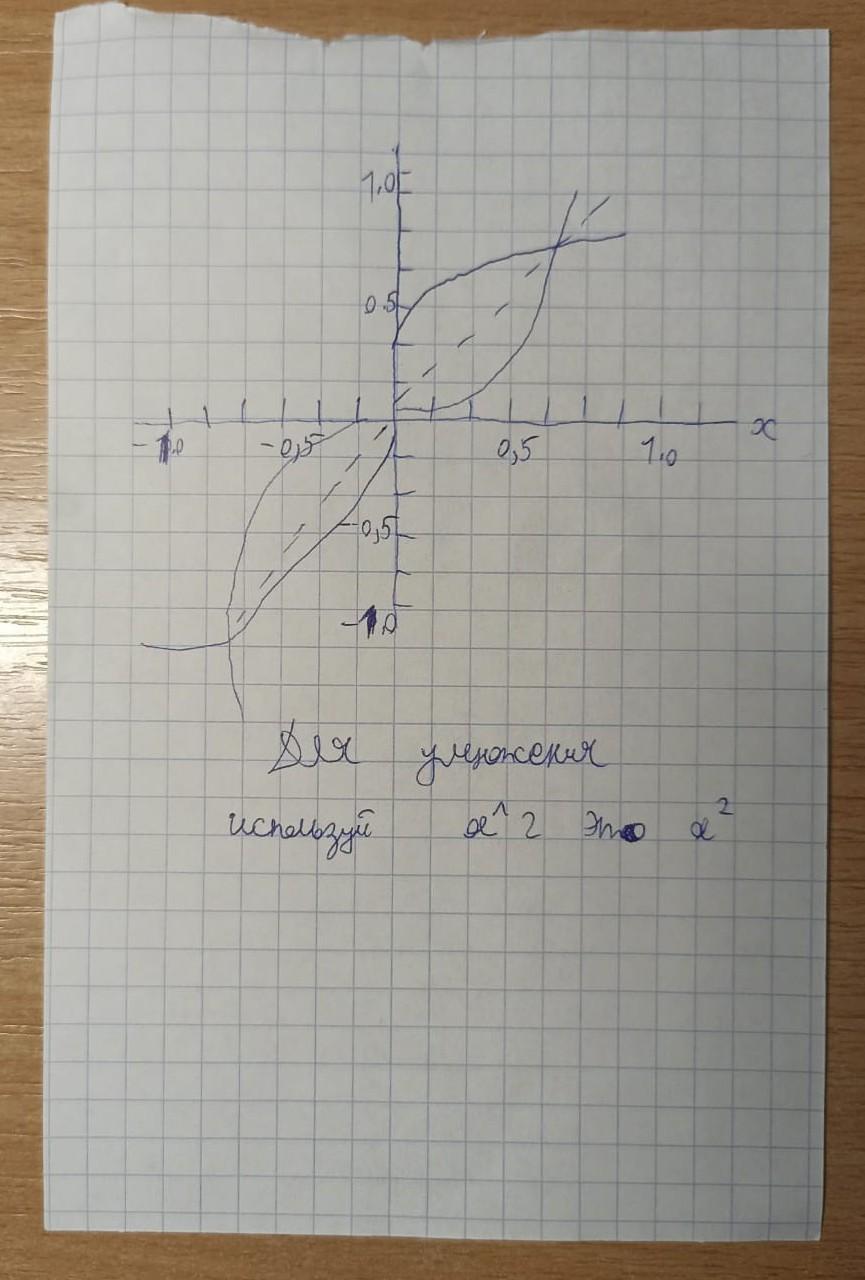 1.0
0.5
-1.0 -0,5 0,5 1.0 x
-0,5
-1.0
Для умножения
используй x^2 это x²